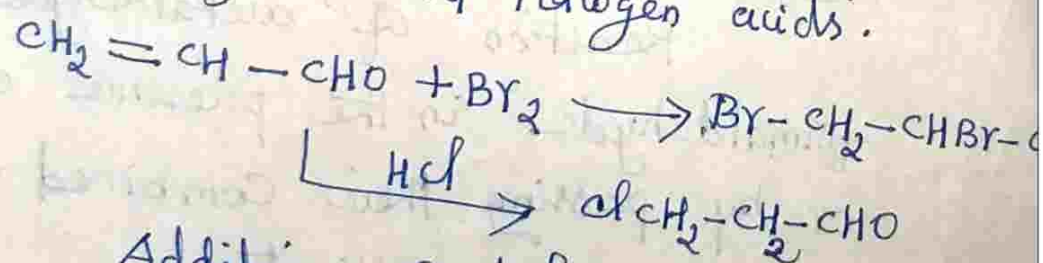 halogen acids.
CH₂ = CH – CHO + Br₂ ⟶ Br – CH₂ – CHBr –
HCl ⟶ ClCH₂ – CH₂ – CHO